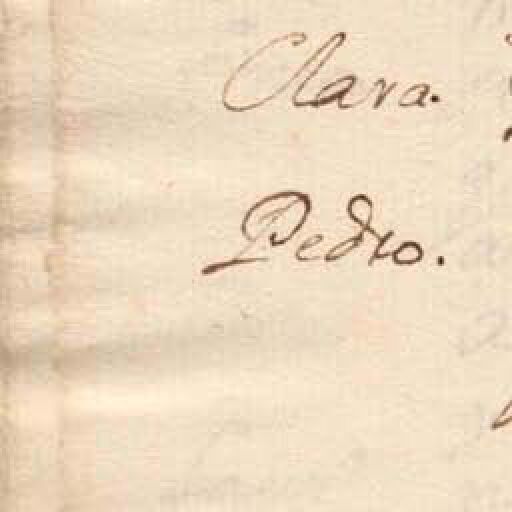 Clara.
Pedro.